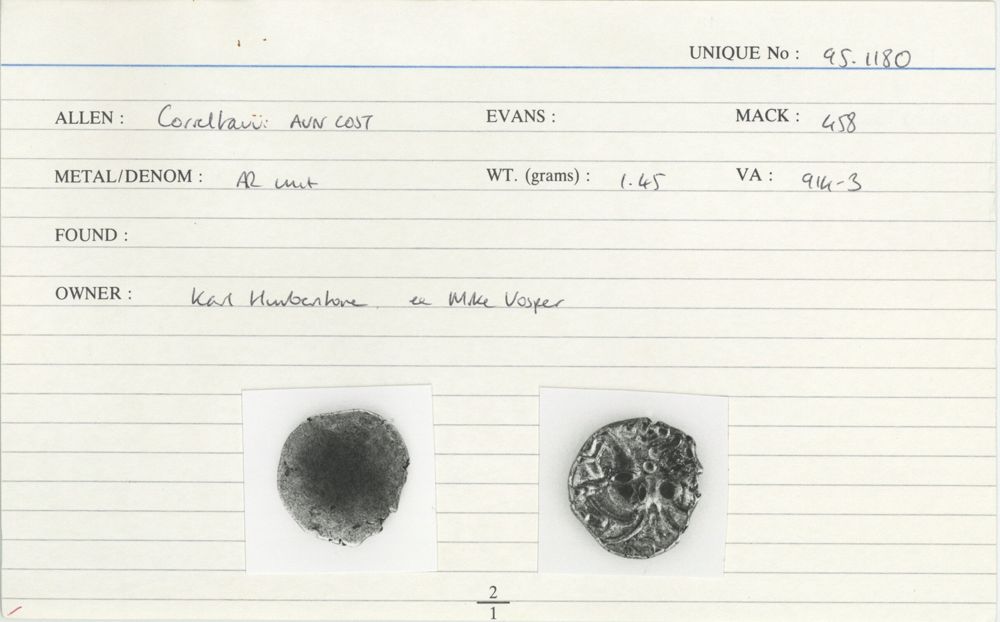 UNIQUE No : 95.1180
ALLEN : Corieltauvi: AVN COST EVANS : MACK : 458
METAL/DENOM : AR unit WT. (grams) : 1.45 VA : 914-3
FOUND :
OWNER : Karl ex Mike Vosper
2
1